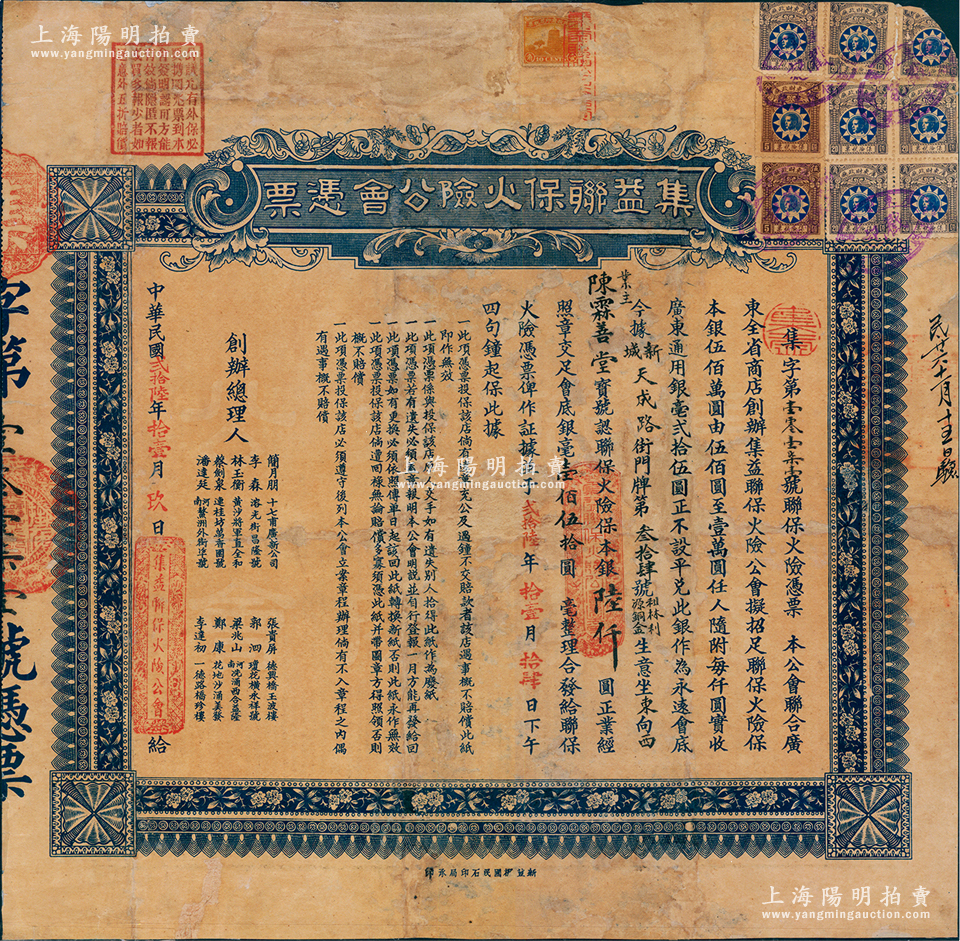 上海陽明拍賣
www.yangmingauction.com
上海陽明拍賣
www.yangmingauction.com
集益聯保火險公會憑票
民廿六十一月十三日驗
集字第 號聯保火險憑票 本公會聯合廣
東全省商店創辦集益聯保火險公會擬招足聯保火險保
本銀伍佰萬圓由伍佰圓至壹萬圓任人隨附每仟圓實收
廣東通用銀毫弍拾伍圓正不設平兌此銀作為永遠會底
今據新城天成路街門牌第叁拾肆號租林利源銅金生意坐東向西
業主
陳霖善堂寶號認聯保火險保本銀陸仟圓正業經
照章交足會底銀毫壹佰伍拾圓 毫整理合發給聯保
火險憑票俾作証據 弍拾陸年拾壹月拾肆日下午
四句鐘起保此據
一此項憑票投保該店倘有 充公及過鐘不交賠款者該店遇事概不賠償此紙
即作無效
一此項憑票係與投保該店 交手如有遺失別人拾得此紙作為廢紙
一此項憑票若有遺失必須 報明本公會明說並自行登報一月方能再發給回
一此項憑票如有更換必須依照傳單日起該回此紙轉換新紙否則此紙永作無效
一此項憑票投保該店倘遭回祿無論賠償多寡須憑此紙并帶圖章方得照領否則
概不賠償
一此項憑票投保該店必須遵守後列本公會立案章程辦理倘有不入章程之內偶
有遇事概不賠償
創辦總理人
簡月朋 十七甫廣新公司
李森 洛光街昌隆號
林玉衡 黃沙將軍直全和
蔡劍泉 連桂坊萬香園號
潘達廷 河南鰲洲外街 號
張貴屏 德興橋王波樓
郭泗 瓊花橫水祥號
梁兆山 河南洗涌西合益隆
鄭康 花地沙涌美發
李達初 一德路楊珍樓
中華民國弍拾陸年拾壹月玖日
集益聯保火險公會
給
字第 號憑票
上海陽明拍賣
www.yangmingauction.com